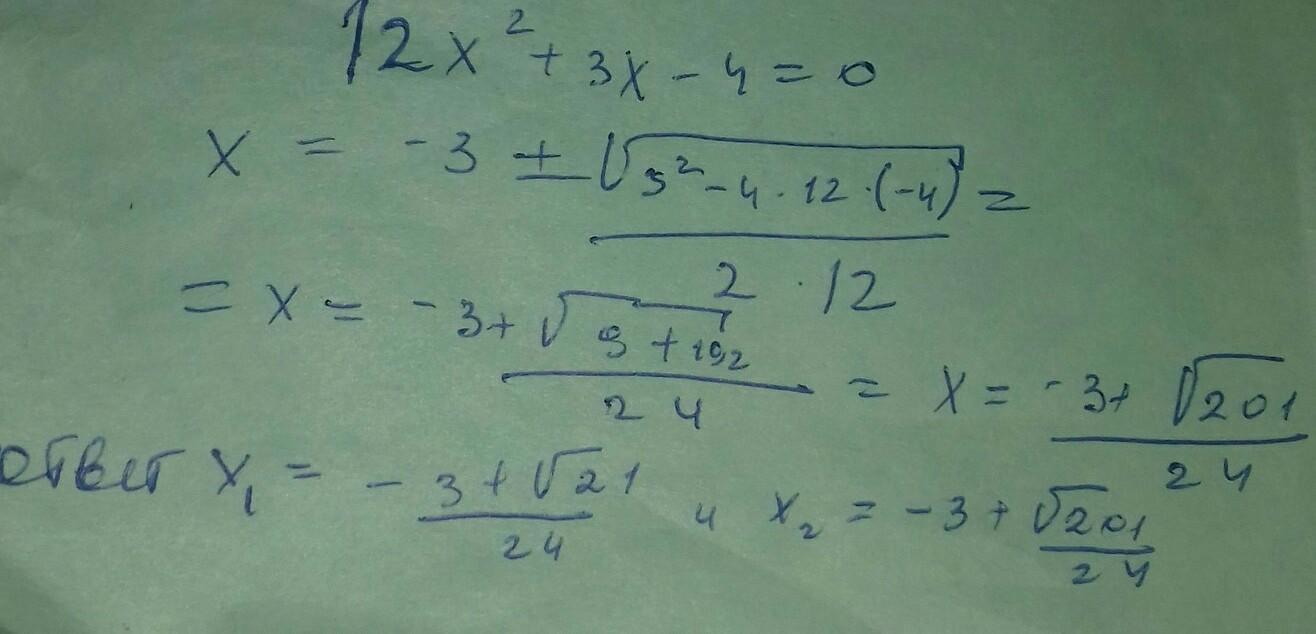 12x² + 3x - 4 = 0
x = -3 ± √(3² - 4 · 12 · (-4)) =
2 · 12
= x = -3 + √(9 + 192) / 24 = x = -3 + √201 / 24
ответ x₁ = -3 + √21 / 24 и x₂ = -3 + √201 / 24